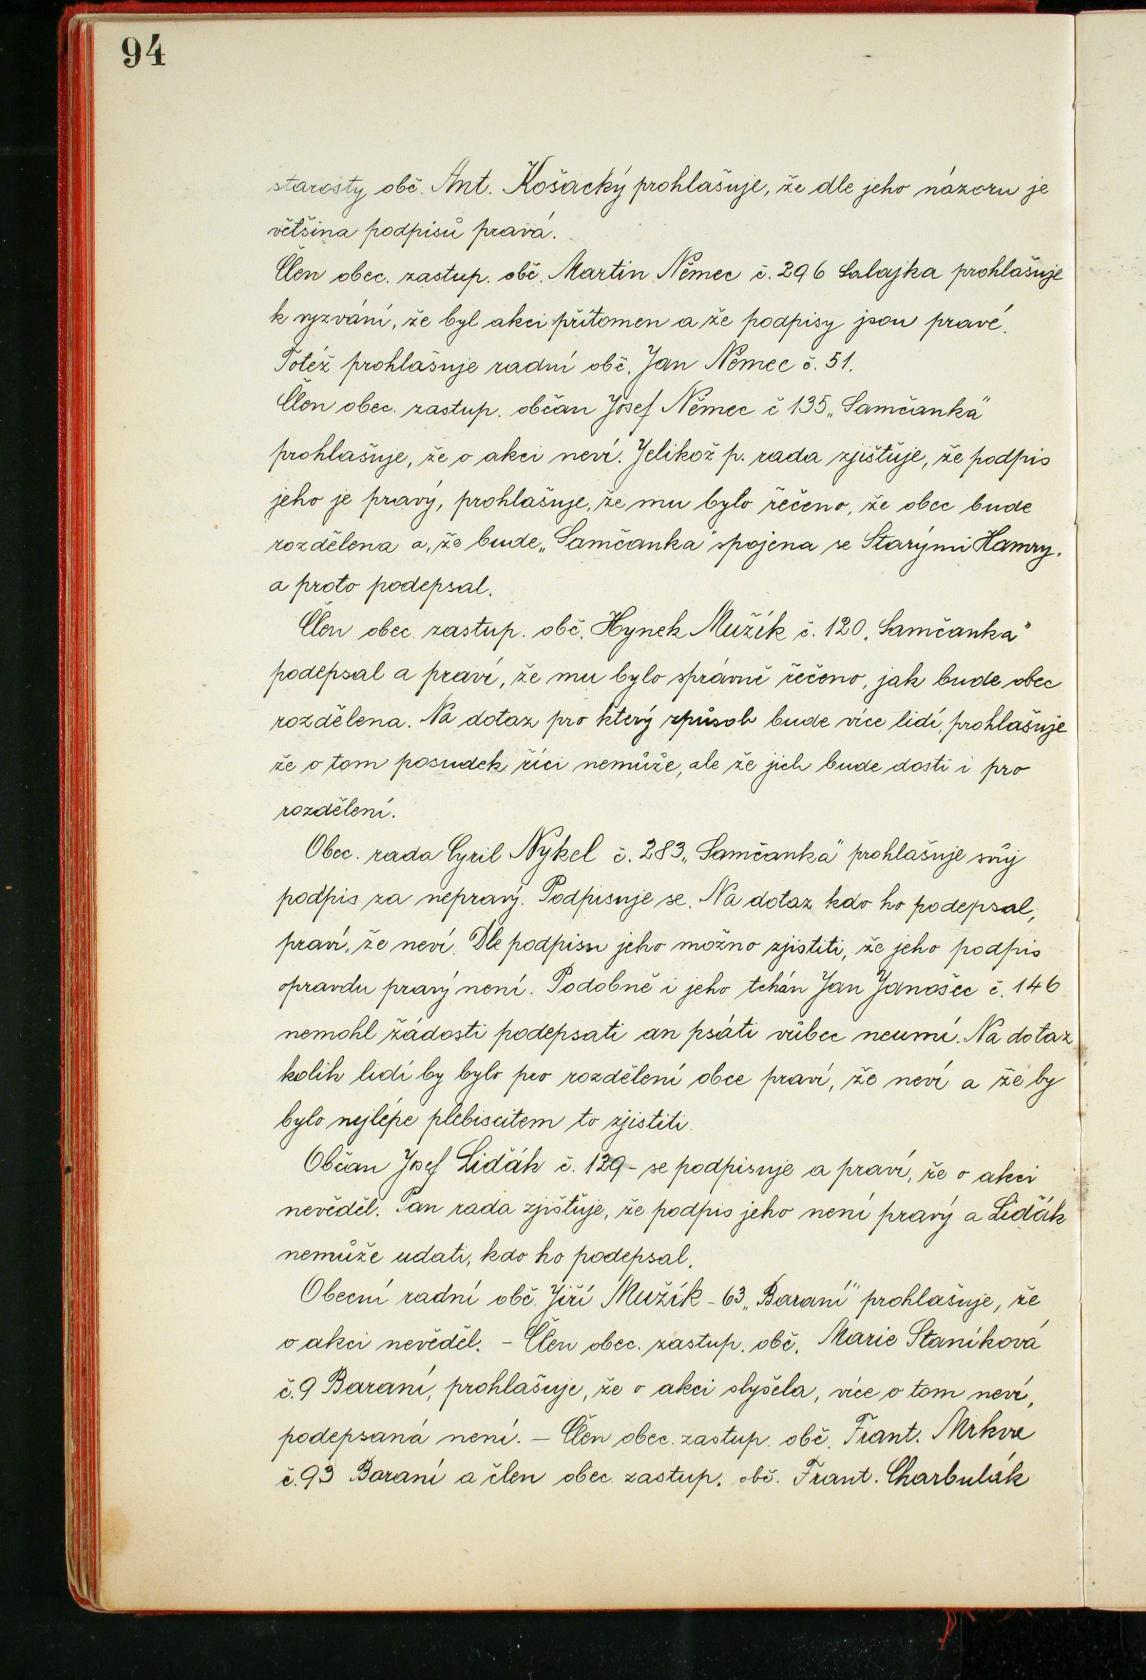 94
starosty, obč. Ant. Košacký prohlašuje, že dle jeho názoru je
většina podpisů pravá.
Člen obec. zastup. obč. Martin Němec č. 296 Salajka prohlašuje
k vyzvání, že byl akci přítomen a že podpisy jsou pravé.
Totéž prohlašuje radní obč. Jan Němec č. 51.
Člen obec. zastup. občan Josef Němec č 135 „Samčanka"
prohlašuje, že o akci neví. Jelikož p. rada zjištuje, že podpis
jeho je pravý, prohlašuje, že mu bylo řečeno, že obec bude
rozdělena a, že bude „Samčanka" spojena se Starými Hamry.
a proto podepsal.
Člen obec. zastup. obč. Hynek Mužík č. 120 „Samčanka"
podepsal a praví, že mu bylo správně řečeno, jak bude obec
rozdělena. Na dotaz pro který způsob bude více lidí, prohlašuje
že o tom posudek říci nemůže, ale že jich bude dosti i pro
rozdělení.
Obec. rada Cyril Nykel č. 283 „Samčanka" prohlašuje svůj
podpis za nepravý. Podpisuje se. Na dotaz kdo ho podepsal,
praví, že neví. Dle podpisu jeho možno zjistiti, že jeho podpis
opravdu pravý není. Podobně i jeho tchán Jan Janošec č. 146
nemohl žádosti podepsati an psáti vůbec neumí. Na dotaz
kolik lidí by bylo pro rozdělení obce praví, že neví a že by
bylo nejlépe plebiscitem to zjistiti.
Občan Josef Lidčák č. 129 - se podpisuje a praví, že o akci
nevěděl. Pan rada zjištuje, že podpis jeho není pravý a Lidčák
nemůže udati, kdo ho podepsal.
Obecní radní obč. Jiří Mužík - 63 „Baraní" prohlašuje, že
o akci nevěděl. - Člen obec. zastup. obč. Marie Staníková
č. 9 Baraní, prohlašuje, že o akci slyšela, více o tom neví,
podepsaná není. - Člen obec. zastup. obč. Frant. Mrkva
č. 93 Baraní a člen obec. zastup. obč. Frant. Charbulák